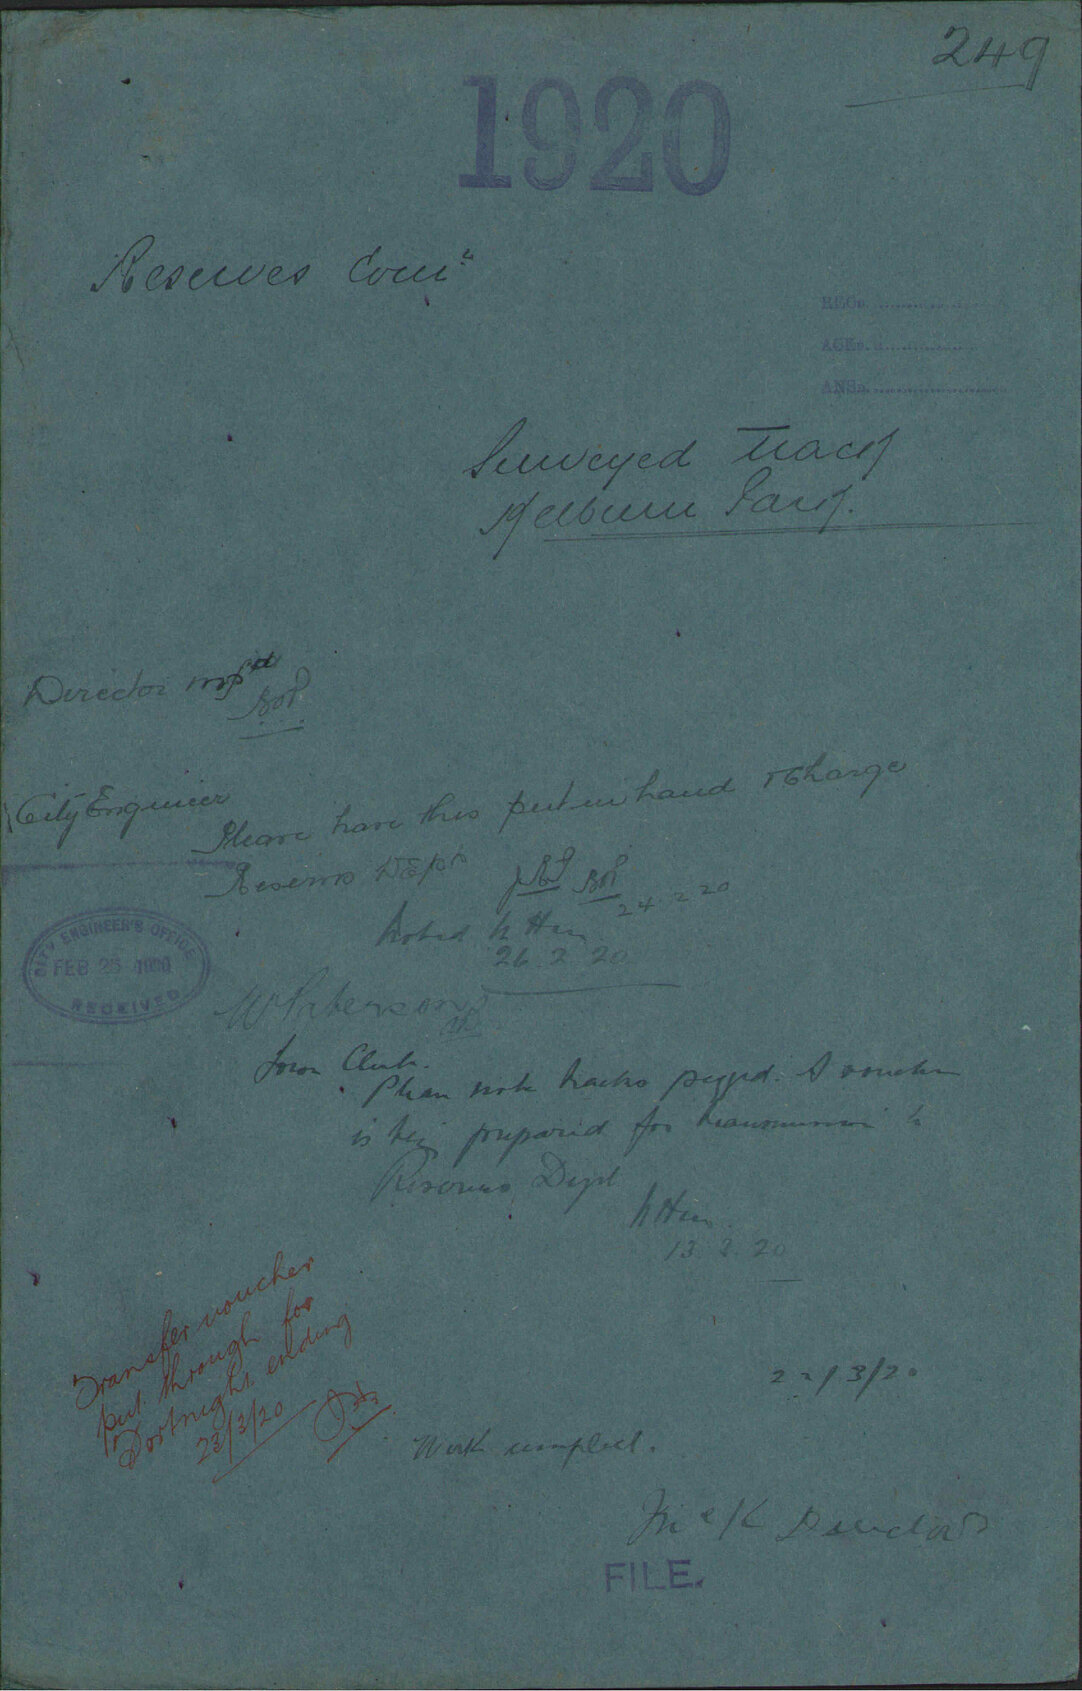 249
1920
Reserves Com:
RECs.
ACKs.
ANSs.
Surveyed Track
Kelburn Park.
Director
City Engineer
Please have this put in hand & Charge
Reserves Dept
24.2.20
Noted
26.2.20
CITY ENGINEER'S OFFICE
FEB 1920
RECEIVED
W Paterson
Town Clerk.
Please note tracks pegged. A voucher
is being prepared for transmission to
Reserves Dept
13.3.20
Transfer voucher
put through for
Fortnight ending
23/3/20
22/3/20
Work complete.
FILE.